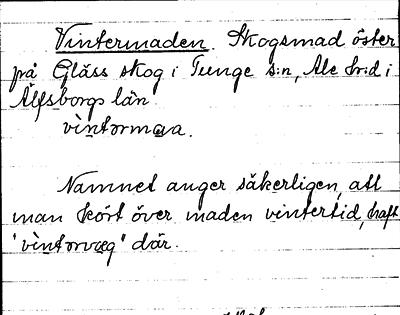 Vintermaden. Skogsmad öster
på Gläss skog i Tunge s:n, Ale h:d i
Älfsborgs län.
vìntərmaa.
Namnet anger säkerligen, att
man kört över maden vintertid, haft
"vìntərvæg" där.